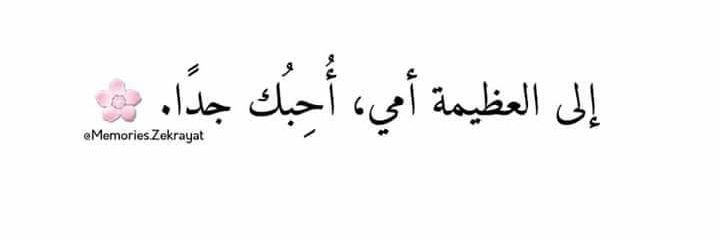 إلى العظيمة أمي، أُحِبُك جدًا. 🌸
@Memories.Zekrayat